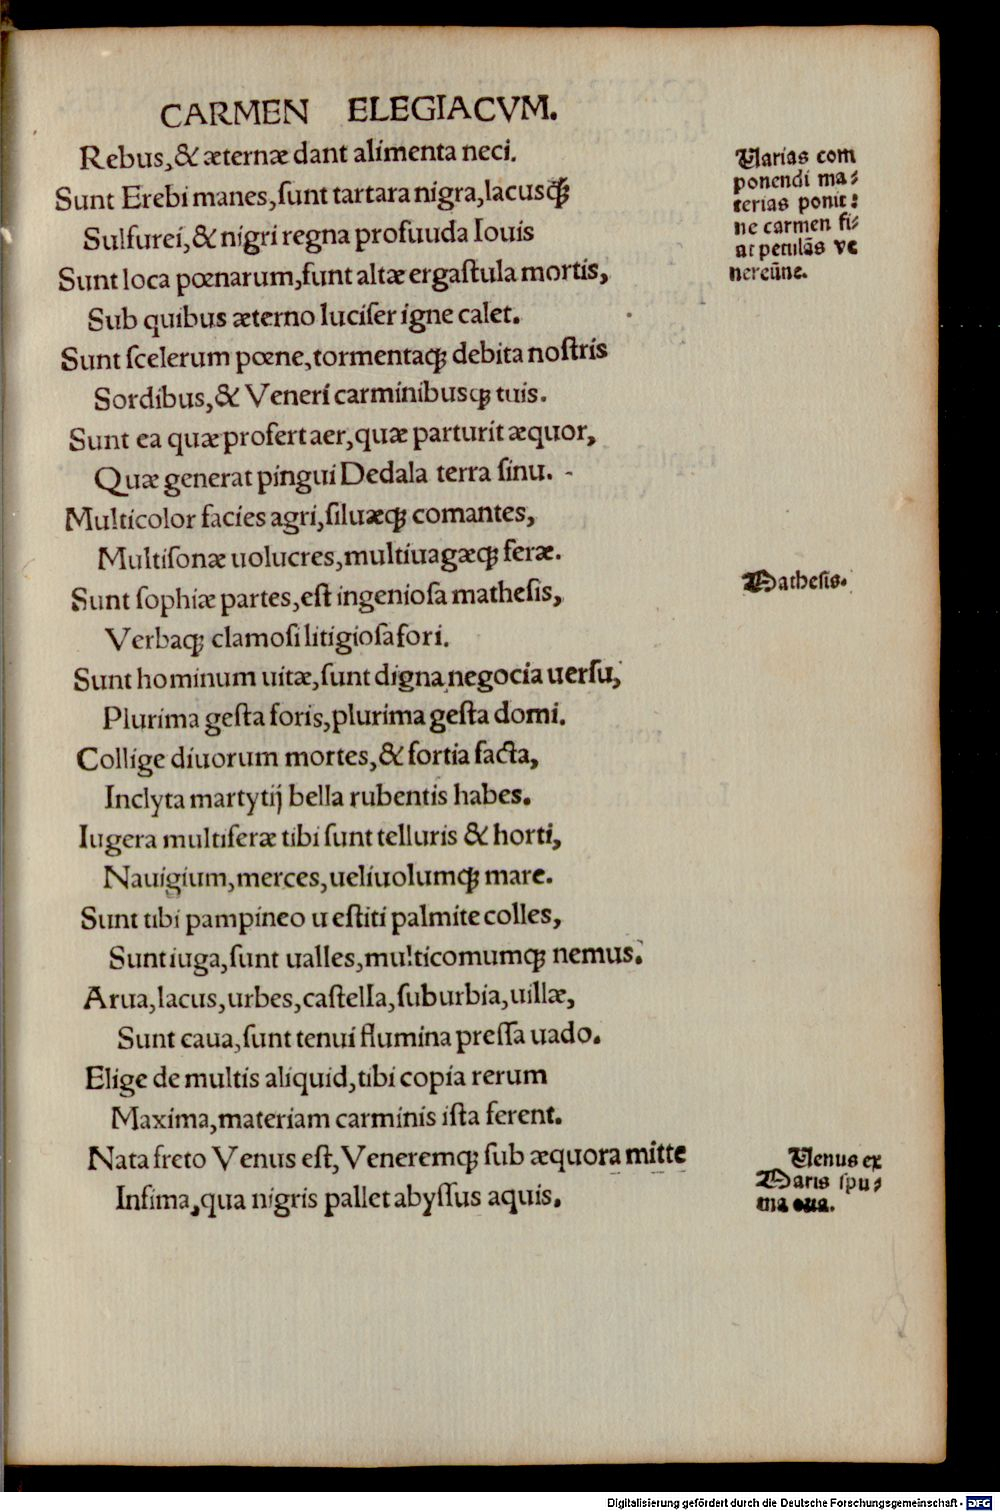 CARMEN ELEGIACVM.
Rebus, & æternæ dant alimenta neci.
Sunt Erebi manes, ſunt tartara nigra, lacusqꝫ
Sulfurei, & nigri regna profuuda Iouis
Sunt loca pœnarum, ſunt altæ ergaſtula mortis,
Sub quibus æterno lucifer igne calet.
Sunt ſcelerum pœne, tormentaqꝫ debita noſtris
Sordibus, & Veneri carminibusqꝫ tuis.
Sunt ea quæ profert aer, quæ parturit æquor,
Quæ generat pingui Dedala terra ſinu.
Multicolor facies agri, ſiluæqꝫ comantes,
Multiſonæ uolucres, multiuagæqꝫ feræ.
Sunt ſophiæ partes, eſt ingenioſa matheſis,
Verbaqꝫ clamoſi litigioſa fori.
Sunt hominum uitæ, ſunt digna negocia uerſu,
Plurima geſta foris, plurima geſta domi.
Collige diuorum mortes, & fortia facta,
Inclyta martytij bella rubentis habes.
Iugera multiferæ tibi ſunt telluris & horti,
Nauigium, merces, ueliuolumqꝫ mare.
Sunt tibi pampineo u eſtiti palmite colles,
Sunt iuga, ſunt ualles, multicomumqꝫ nemus.
Arua, lacus, urbes, caſtella, ſuburbia, uillæ,
Sunt caua, ſunt tenui flumina preſſa uado.
Elige de multis aliquid, tibi copia rerum
Maxima, materiam carminis iſta ferent.
Nata freto Venus eſt, Veneremqꝫ ſub æquora mitte
Infima, qua nigris pallet abyſſus aquis.
Varias com
ponendi ma⸗
terias ponit:
ne carmen fi⸗
at petulãs ve
nereũne.
Mathesis.
Venus ex
Maris ſpu⸗
ma oua.
Digitalisierung gefördert durch die Deutsche Forschungsgemeinschaft - DFG